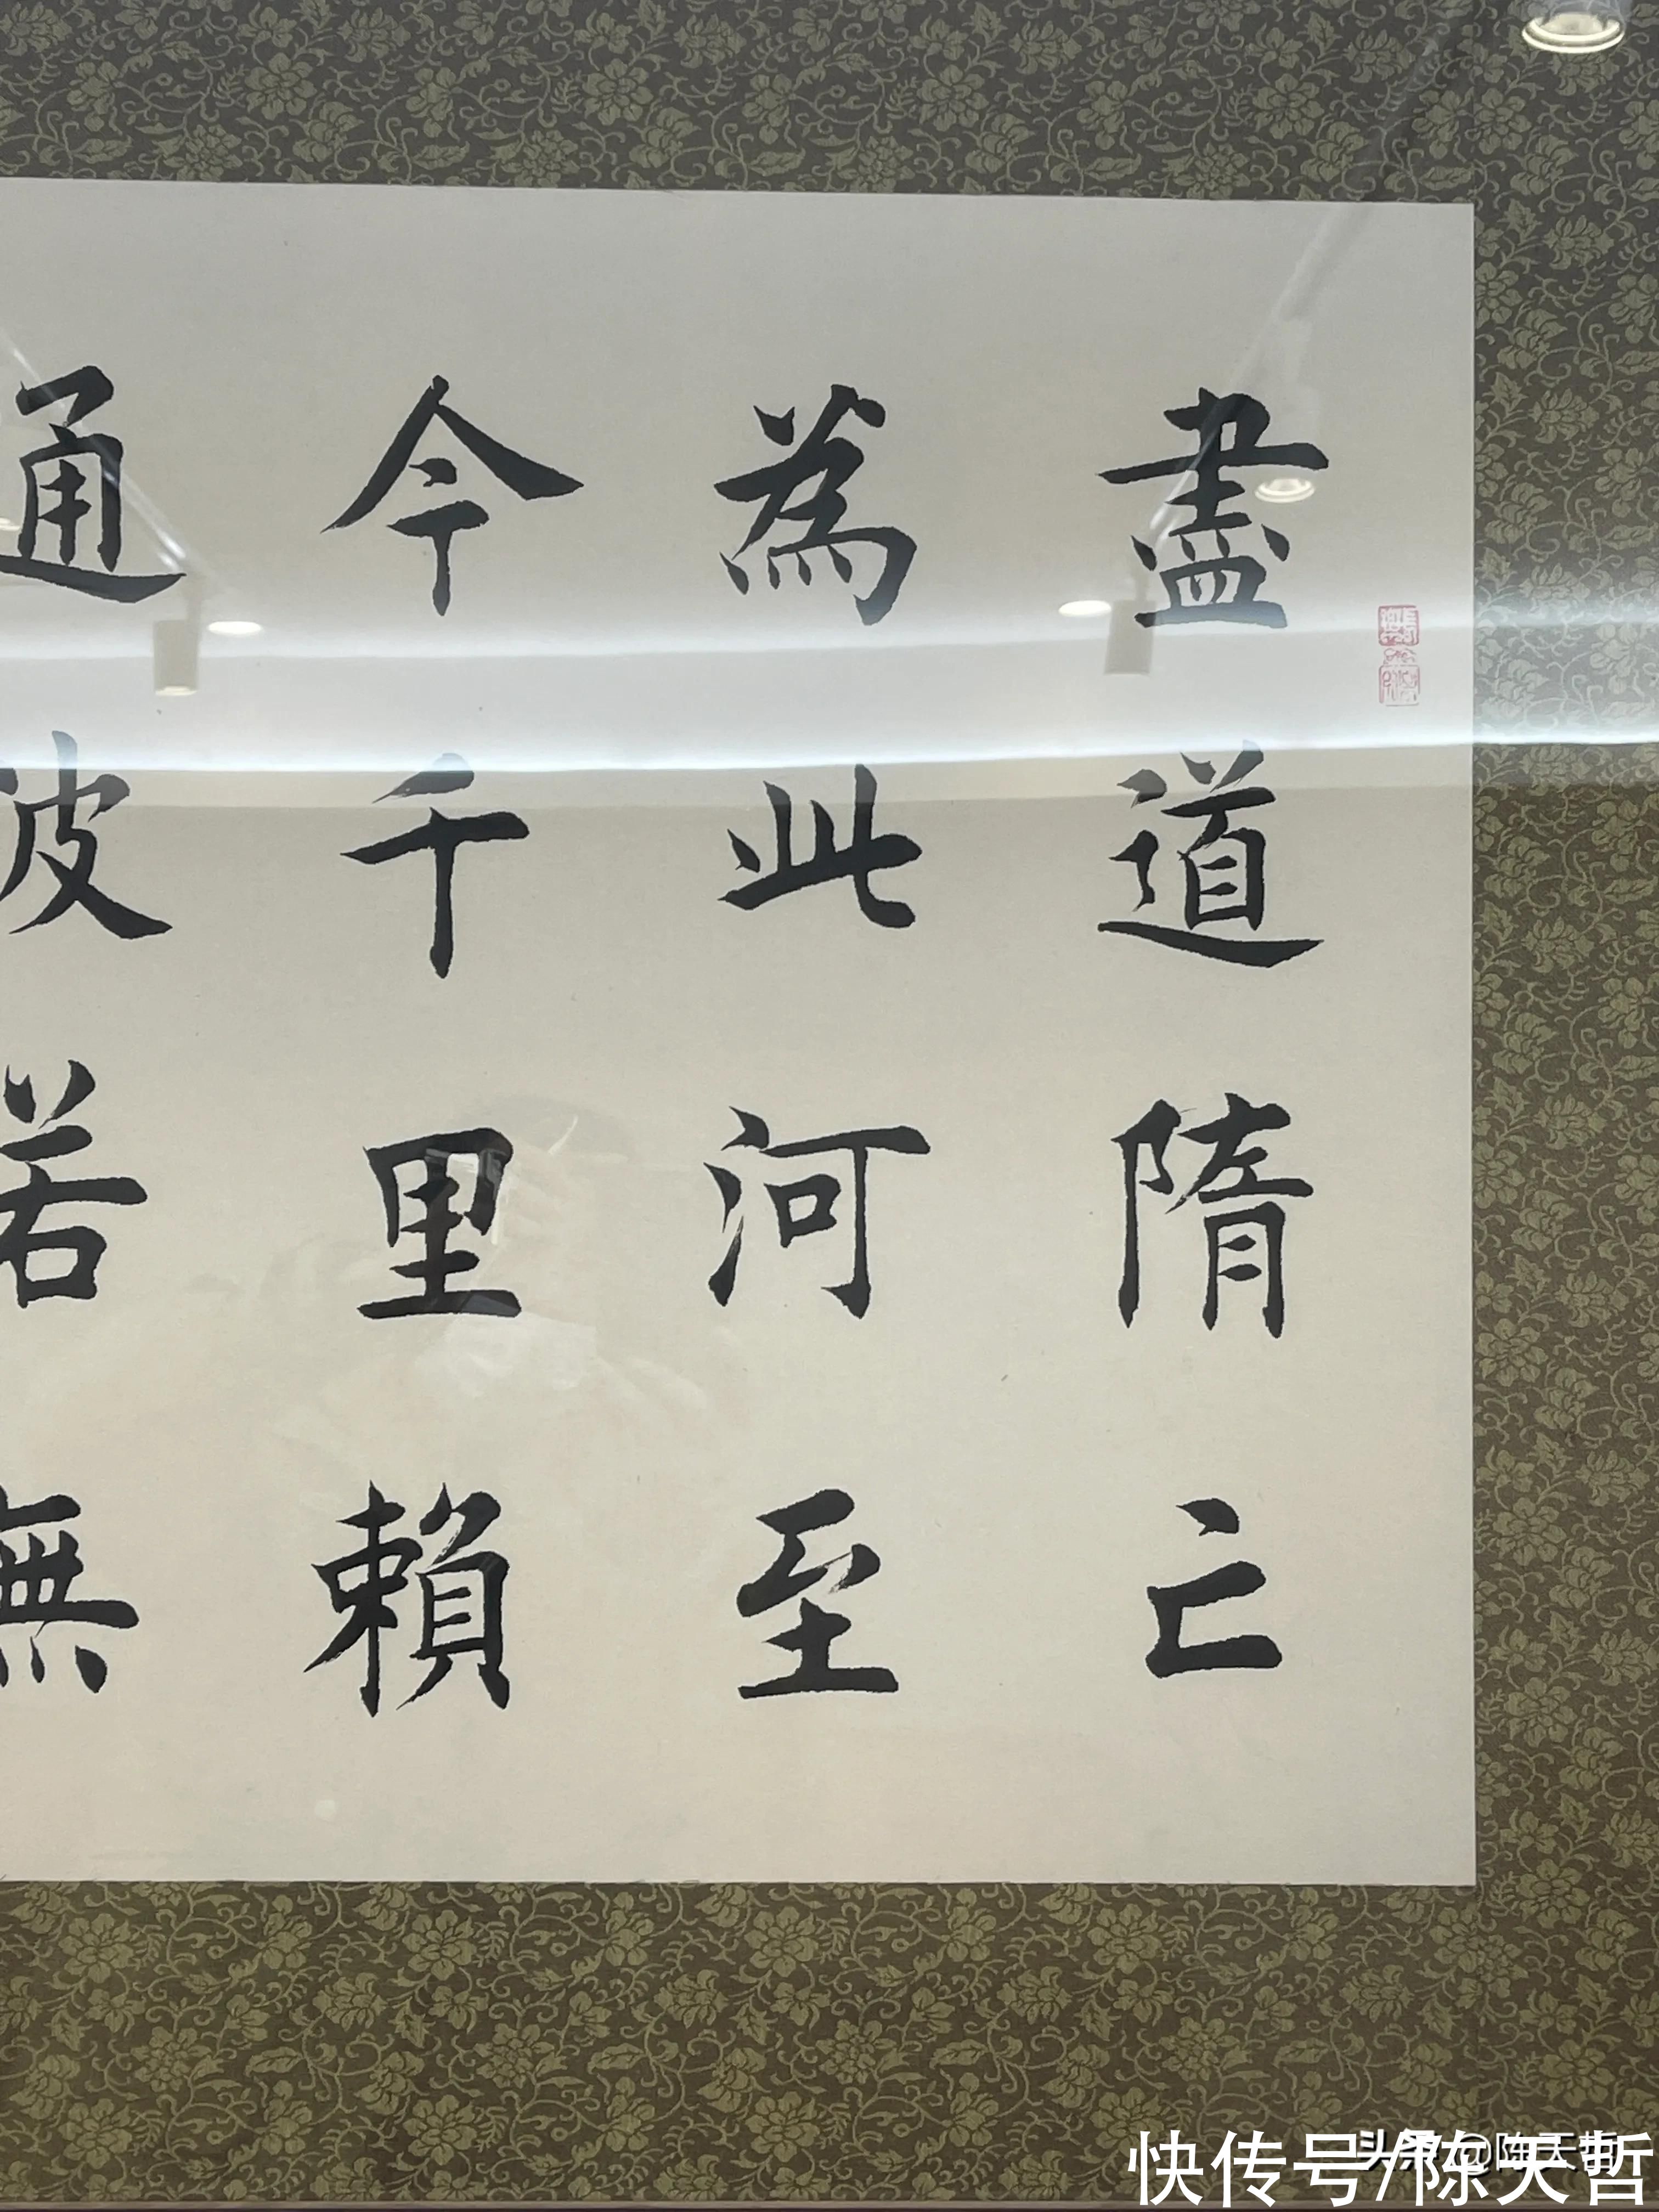 盡道隋亡
為此河至
今千里賴
通波若無
快传号/陈天哲
头条@陈天哲